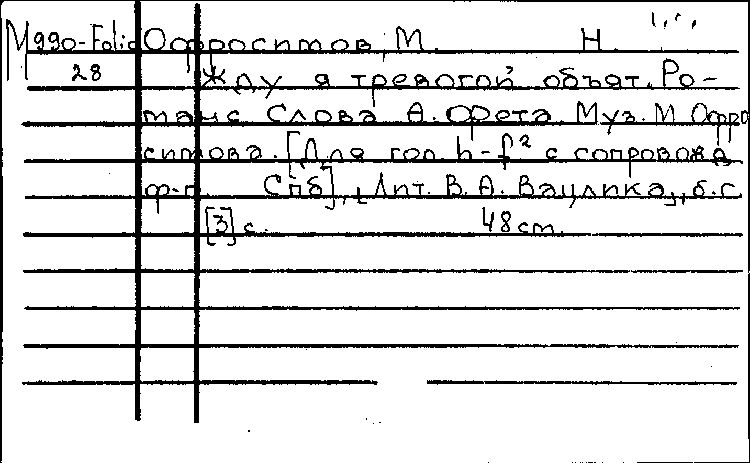 М 990-Folio Офросимов, М. Н.
28 Жду я тревогой объят. Ро-
манс Слова А. Фета Муз. М Офро
симова. [Для гол. h-f² с сопровожд
ф-п. Спб], "Лит. В. А. Вацлика", б. г.
[3] с. 48 cm.